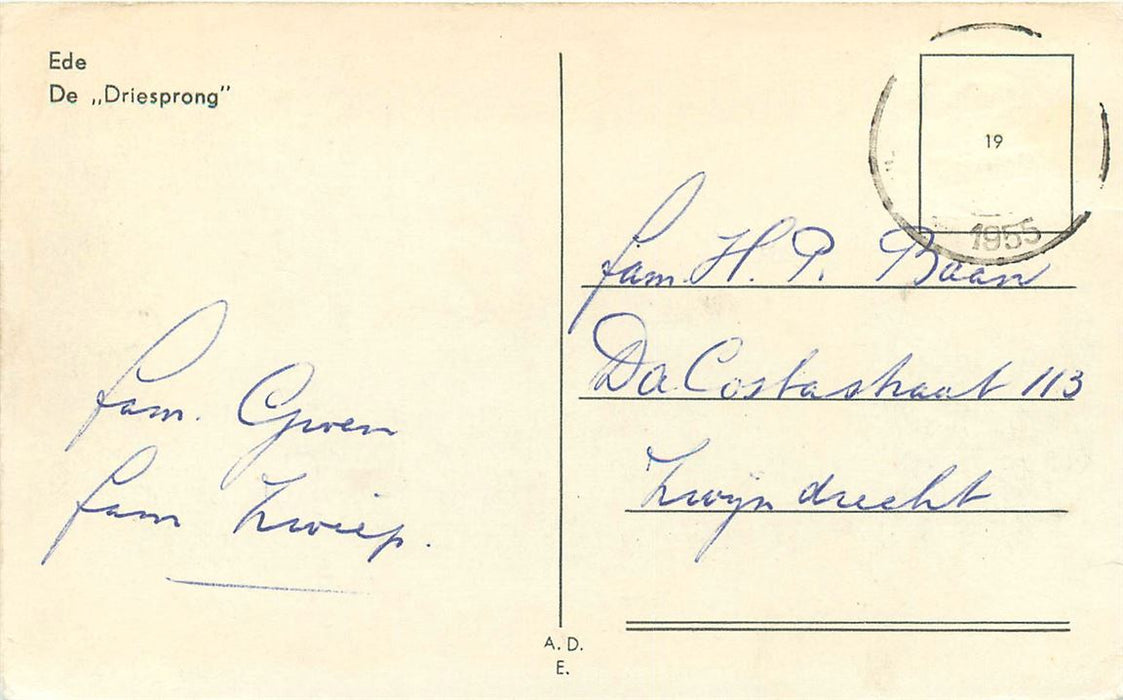 Ede
De „Driesprong”
fam. Gwen
fam Zwiep.
19
1955
fam. H. P. Baan
Da Costastraat 113
Zwijndrecht
A. D.
E.